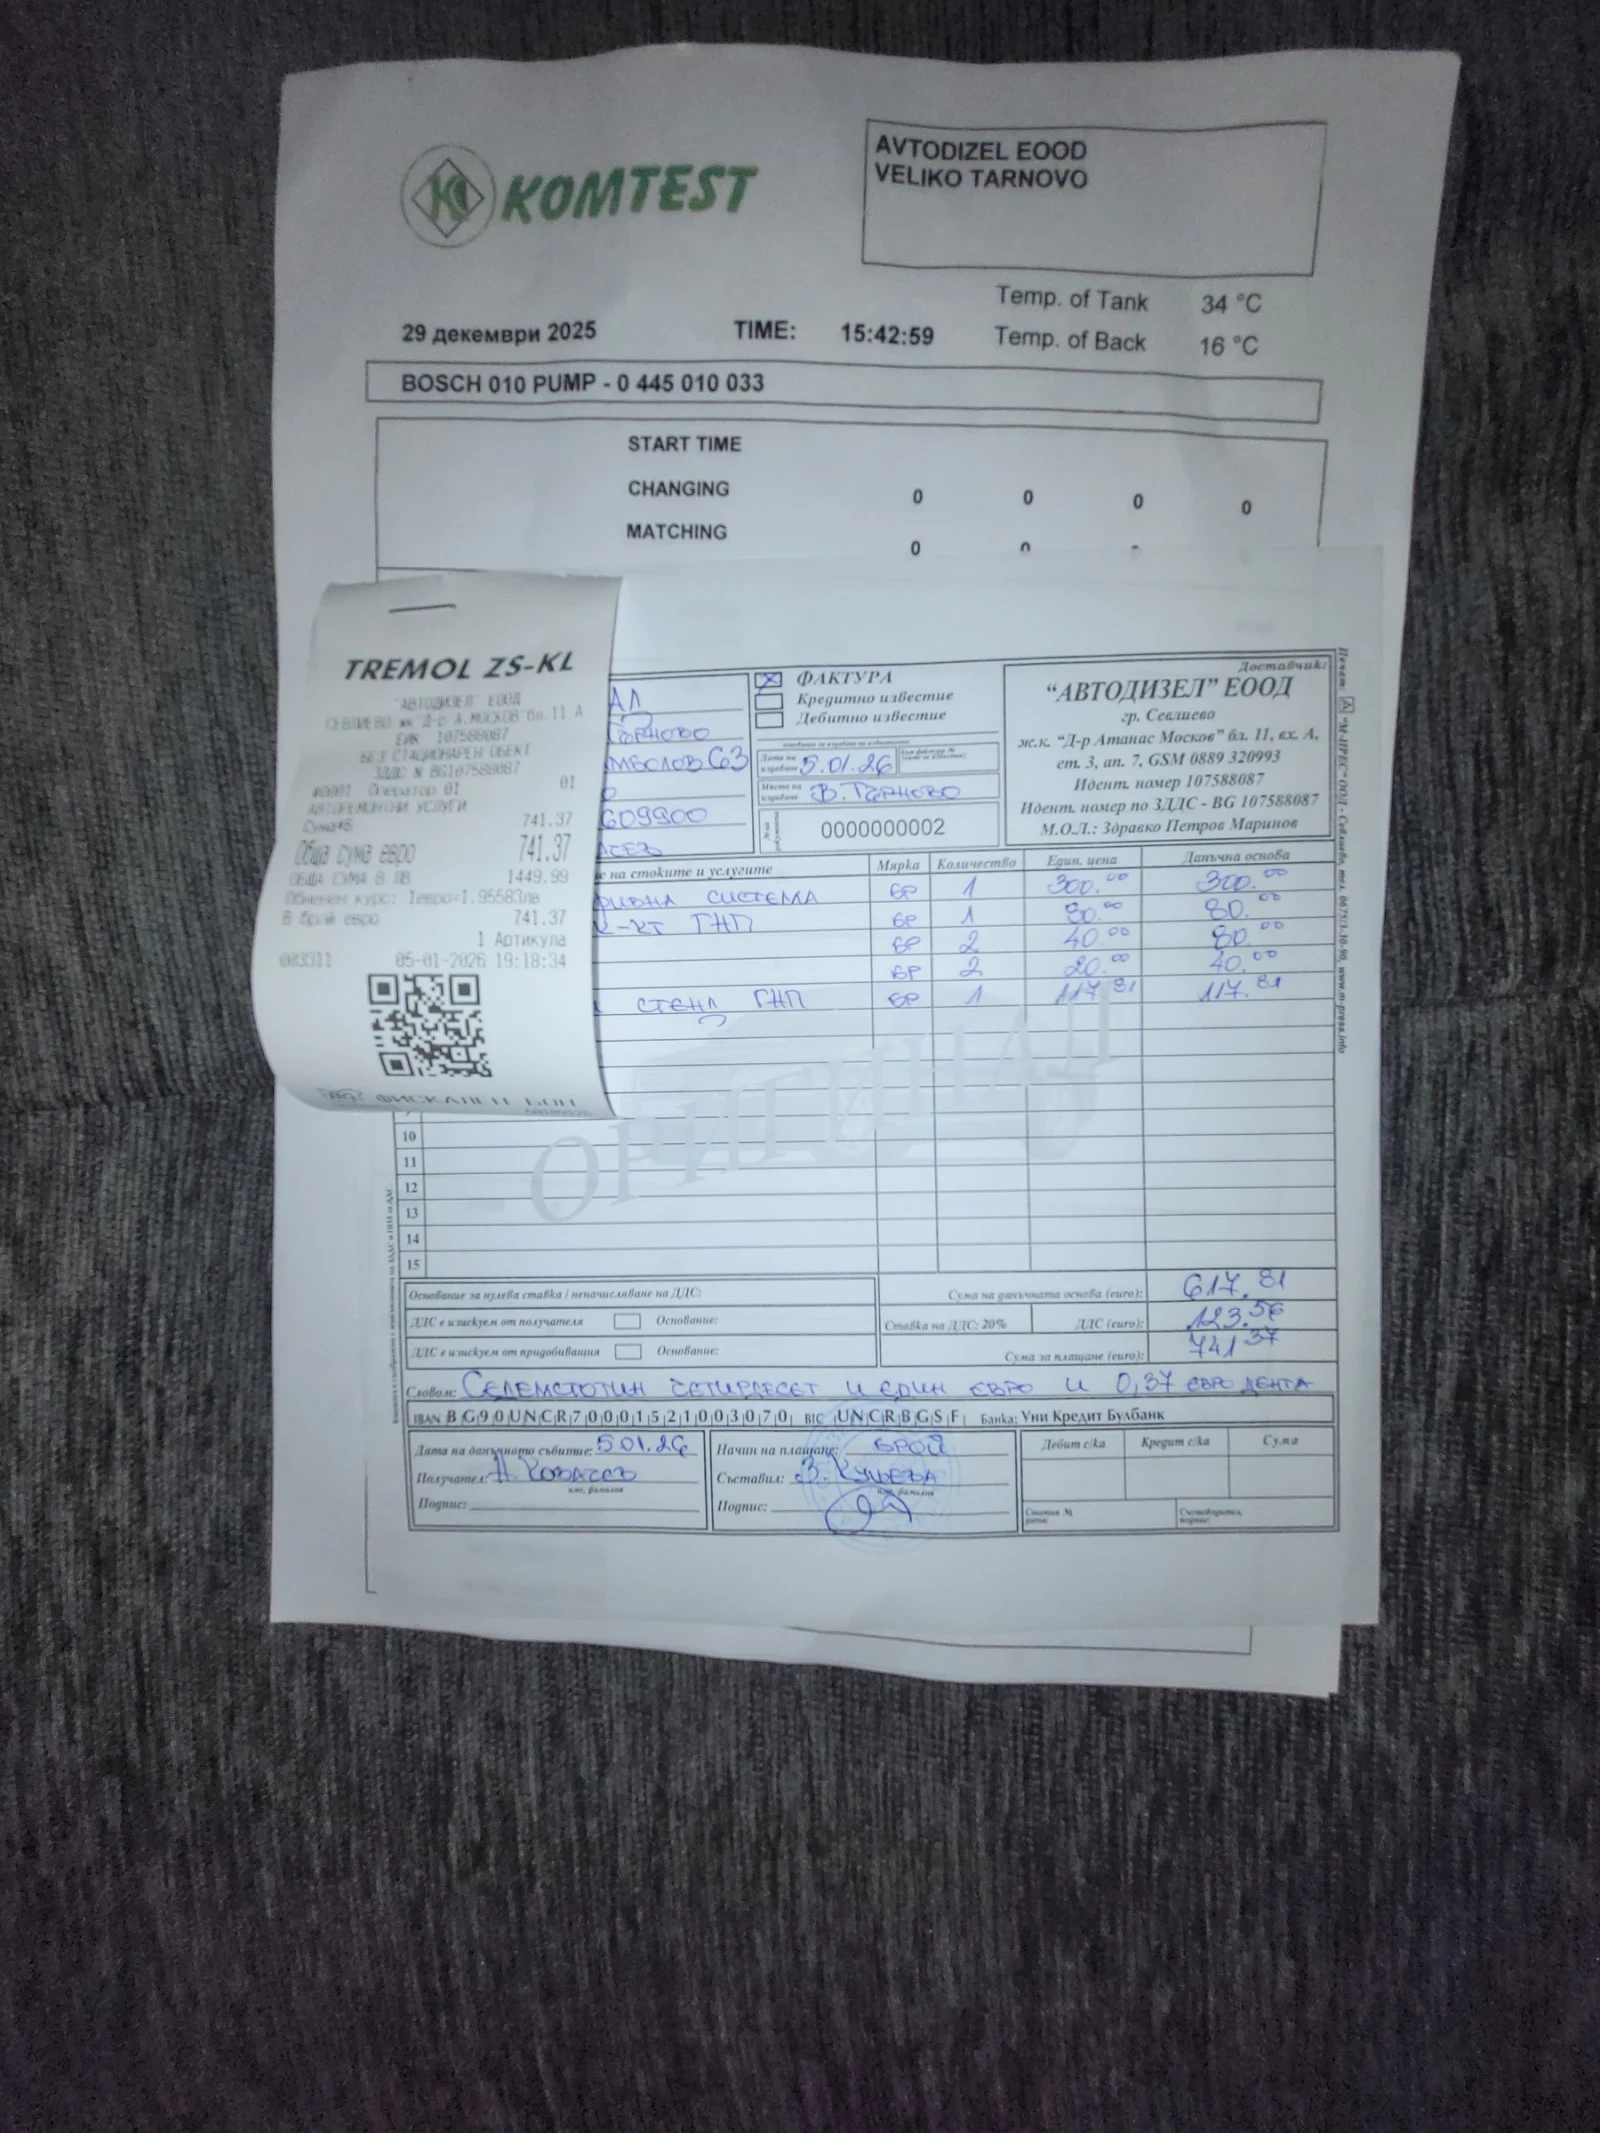 KOMTEST
AVTODIZEL EOOD
VELIKO TARNOVO
Temp. of Tank 34 °C
29 декември 2025 TIME: 15:42:59 Temp. of Back 16 °C
BOSCH 010 PUMP - 0 445 010 033
START TIME
CHANGING 0 0 0 0
MATCHING 0 0
TREMOL ZS-KL
"АВТОДИЗЕЛ" ЕООД
СЕВЛИЕВО жк Д-р А.МОСКОВ бл.11 А
ЕИК 107588087
БЕЗ СТАЦИОНАРЕН ОБЕКТ
ЗДДС N BG107588087
#0001 Оператор 01 01
АВТОРЕМОНТНИ УСЛУГИ
Сума*Б 741.37
Обща сума евро 741.37
ОБЩА СУМА В ЛВ 1449.99
Обменен курс: 1евро=1.95583лв
В брой евро 741.37
1 Артикула
003311 05-01-2026 19:18:34
ФИСКАЛЕН БОН
АЛ
Търново
МБОЛОВ 63
О
609900
АСЕВ
ФАКТУРА
Кредитно известие
Дебитно известие
Дата на издаване 5.01.26
Място на издаване В. Търново
0000000002
Доставчик:
"АВТОДИЗЕЛ" ЕООД
гр. Севлиево
ж.к. "Д-р Атанас Москов" бл. 11, вх. А,
ет. 3, ап. 7, GSM 0889 320993
Идент. номер 107588087
Идент. номер по ЗДДС - BG 107588087
М.О.Л.: Здравко Петров Маринов
е на стоките и услугите Мярка Количество Един. цена Данъчна основа
РИВНА СИСТЕМА БР 1 300.00 300.00
К-КТ ГНП БР 1 80.00 80.00
БР 2 40.00 80.00
БР 2 20.00 40.00
СТЕНД ГНП БР 1 117.81 117.81
ОРИГИНАЛ
10
11
12
13
14
15
Основание за нулева ставка / неначисляване на ДДС: Сума на данъчната основа (euro): 617.81
ДДС е изискуем от получателя Основание: Ставка на ДДС: 20% ДДС (euro): 123.56
ДДС е изискуем от придобиващия Основание: Сума за плащане (euro): 741.37
Словом: Седемстотин четиридесет и един евро и 0,37 евро цента
IBAN BG90UNCR70001521003070 BIC UNCRBGSF Банка: Уни Кредит Булбанк
Дата на данъчното събитие: 5.01.26 Начин на плащане: БРОЙ Дебит с/ка Кредит с/ка Сума
Получател: Н. Ковачев Съставил:
име, фамилия име, фамилия
Подпис: Подпис: